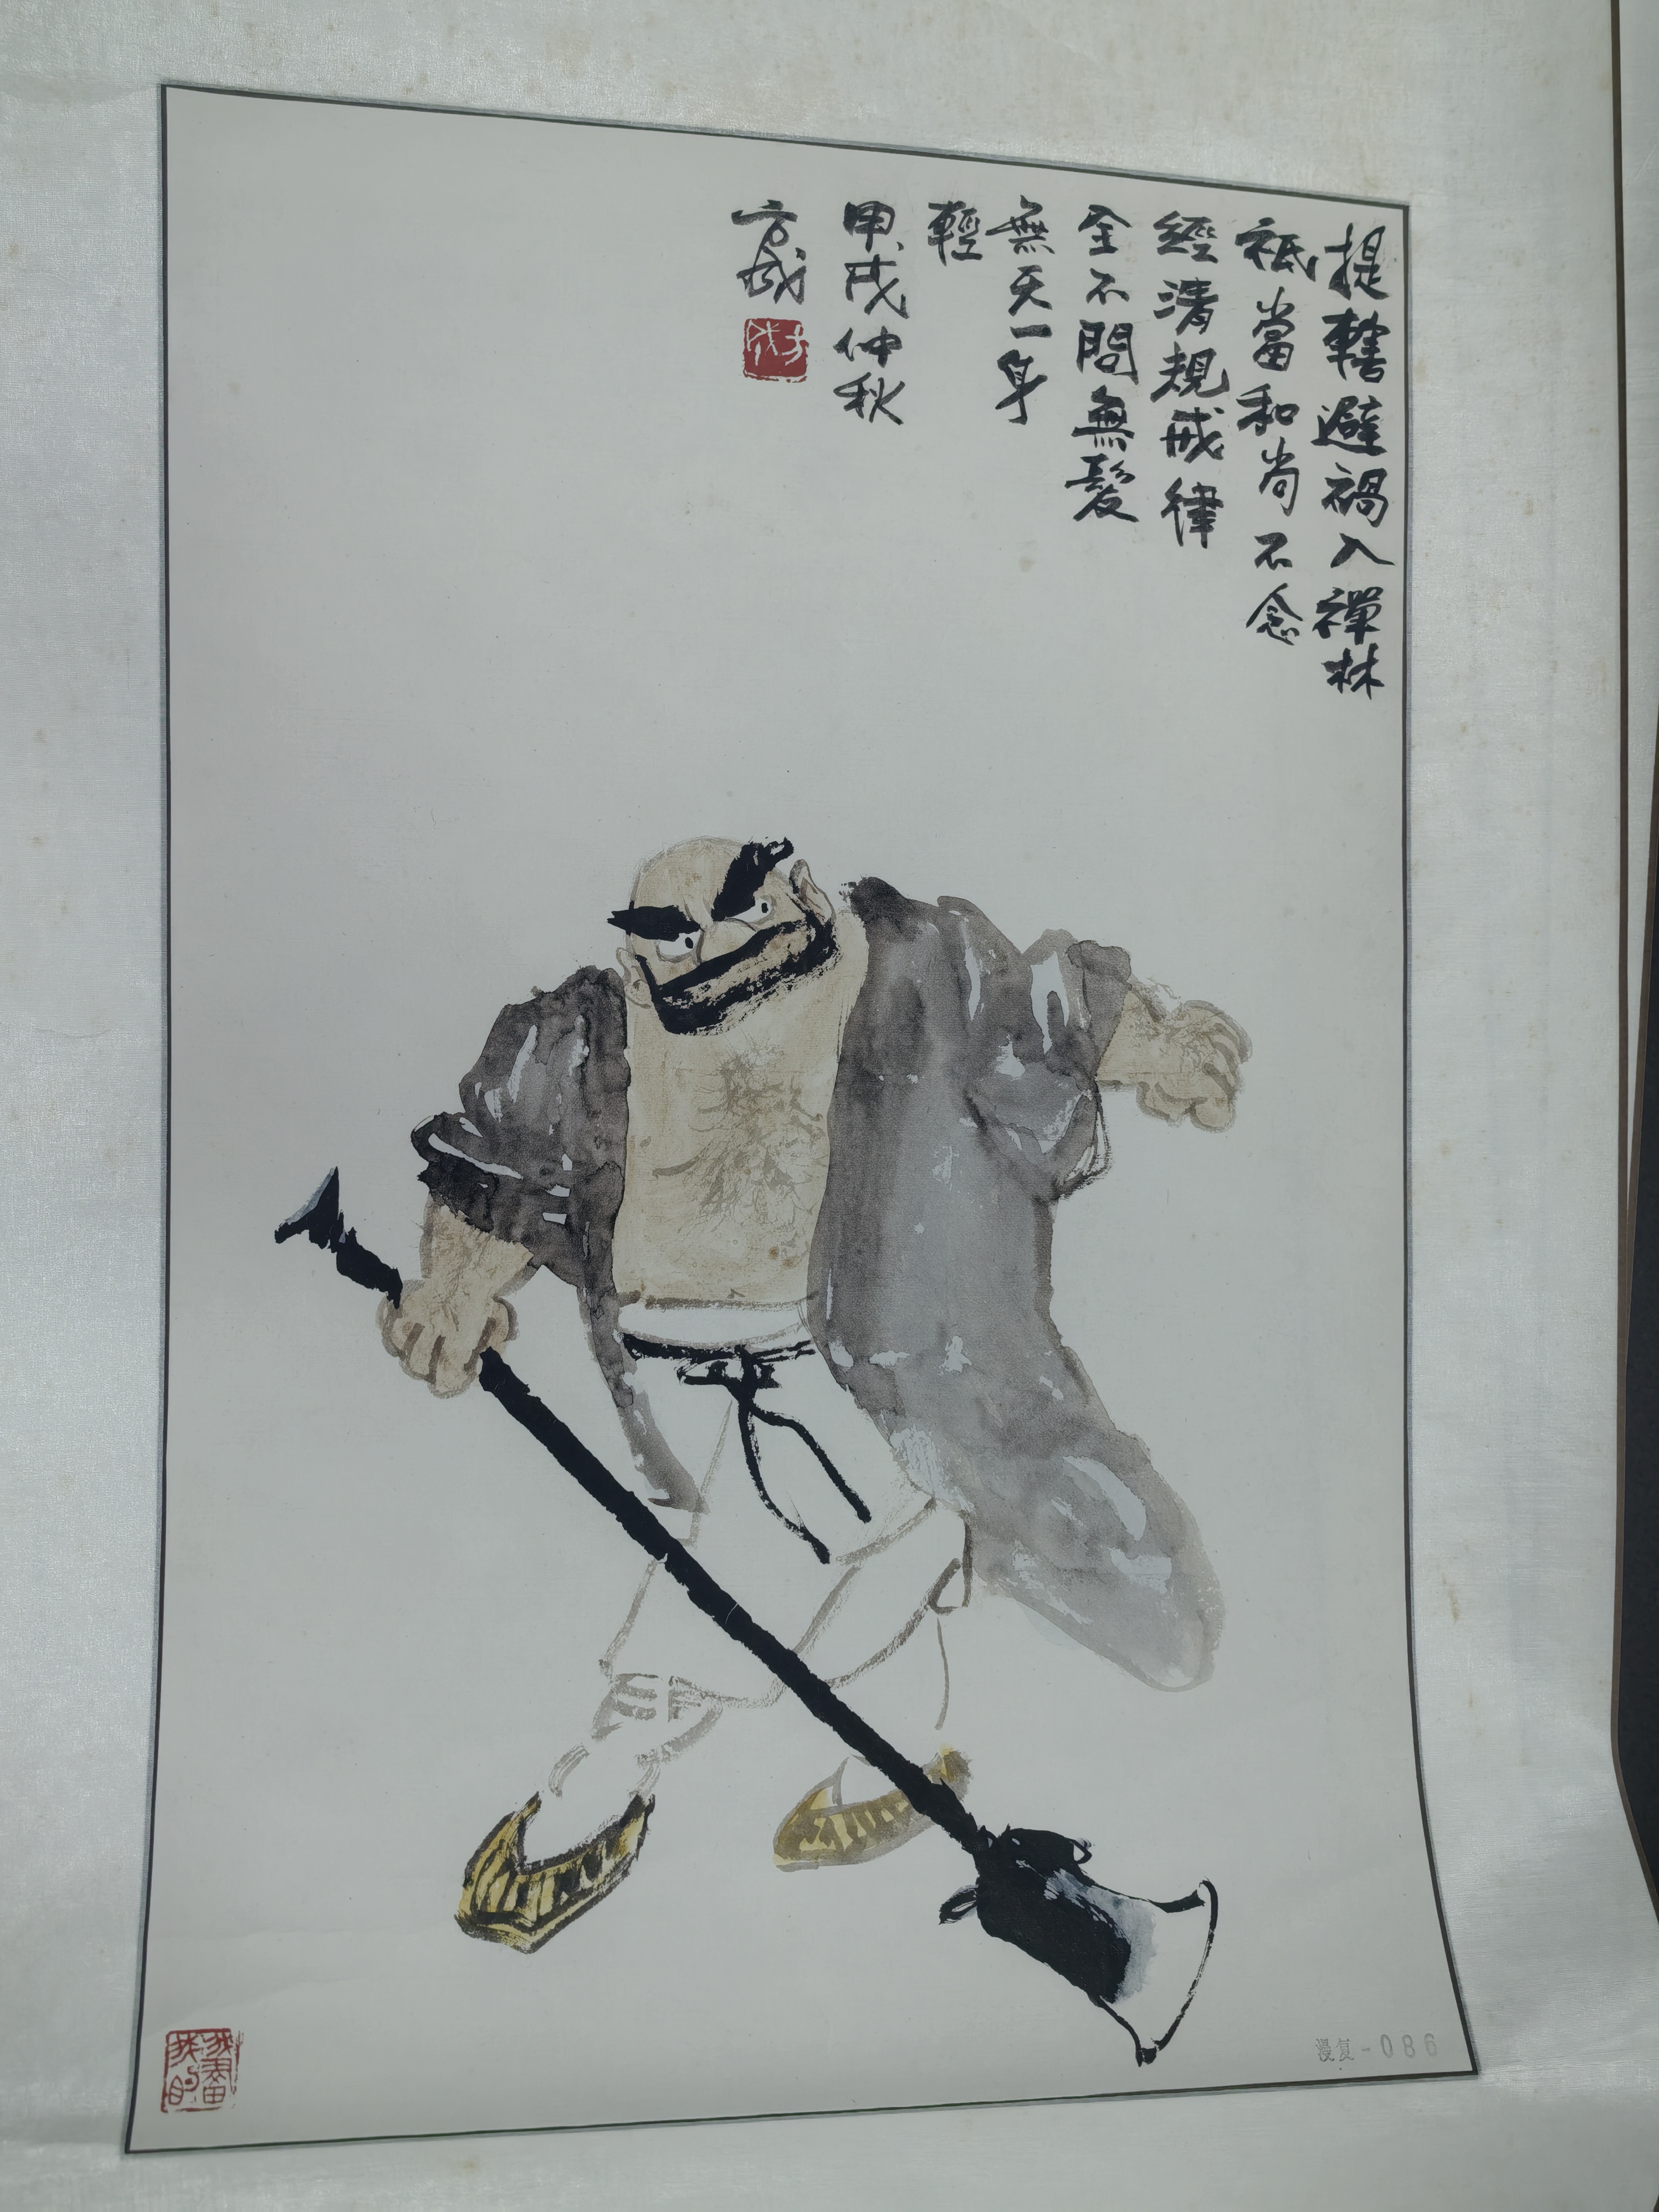 提轄避禍入禪林
祇當和尚不念
經清規戒律
全不問無髮
無天一身
輕
甲戌仲秋
方成
方成
我畫我的
漫复-086